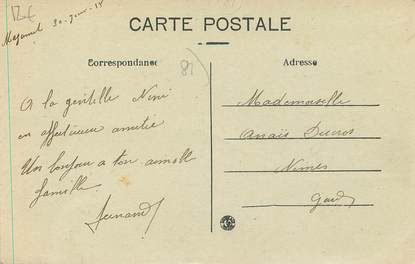 CARTE POSTALE
Correspondance
Adresse
81
A la gentille Nini
en affectueuse amitié
Un bonjour a ton aimable
famille
Fernand
Mademoiselle
Anaïs Ducros
Nimes
Gard